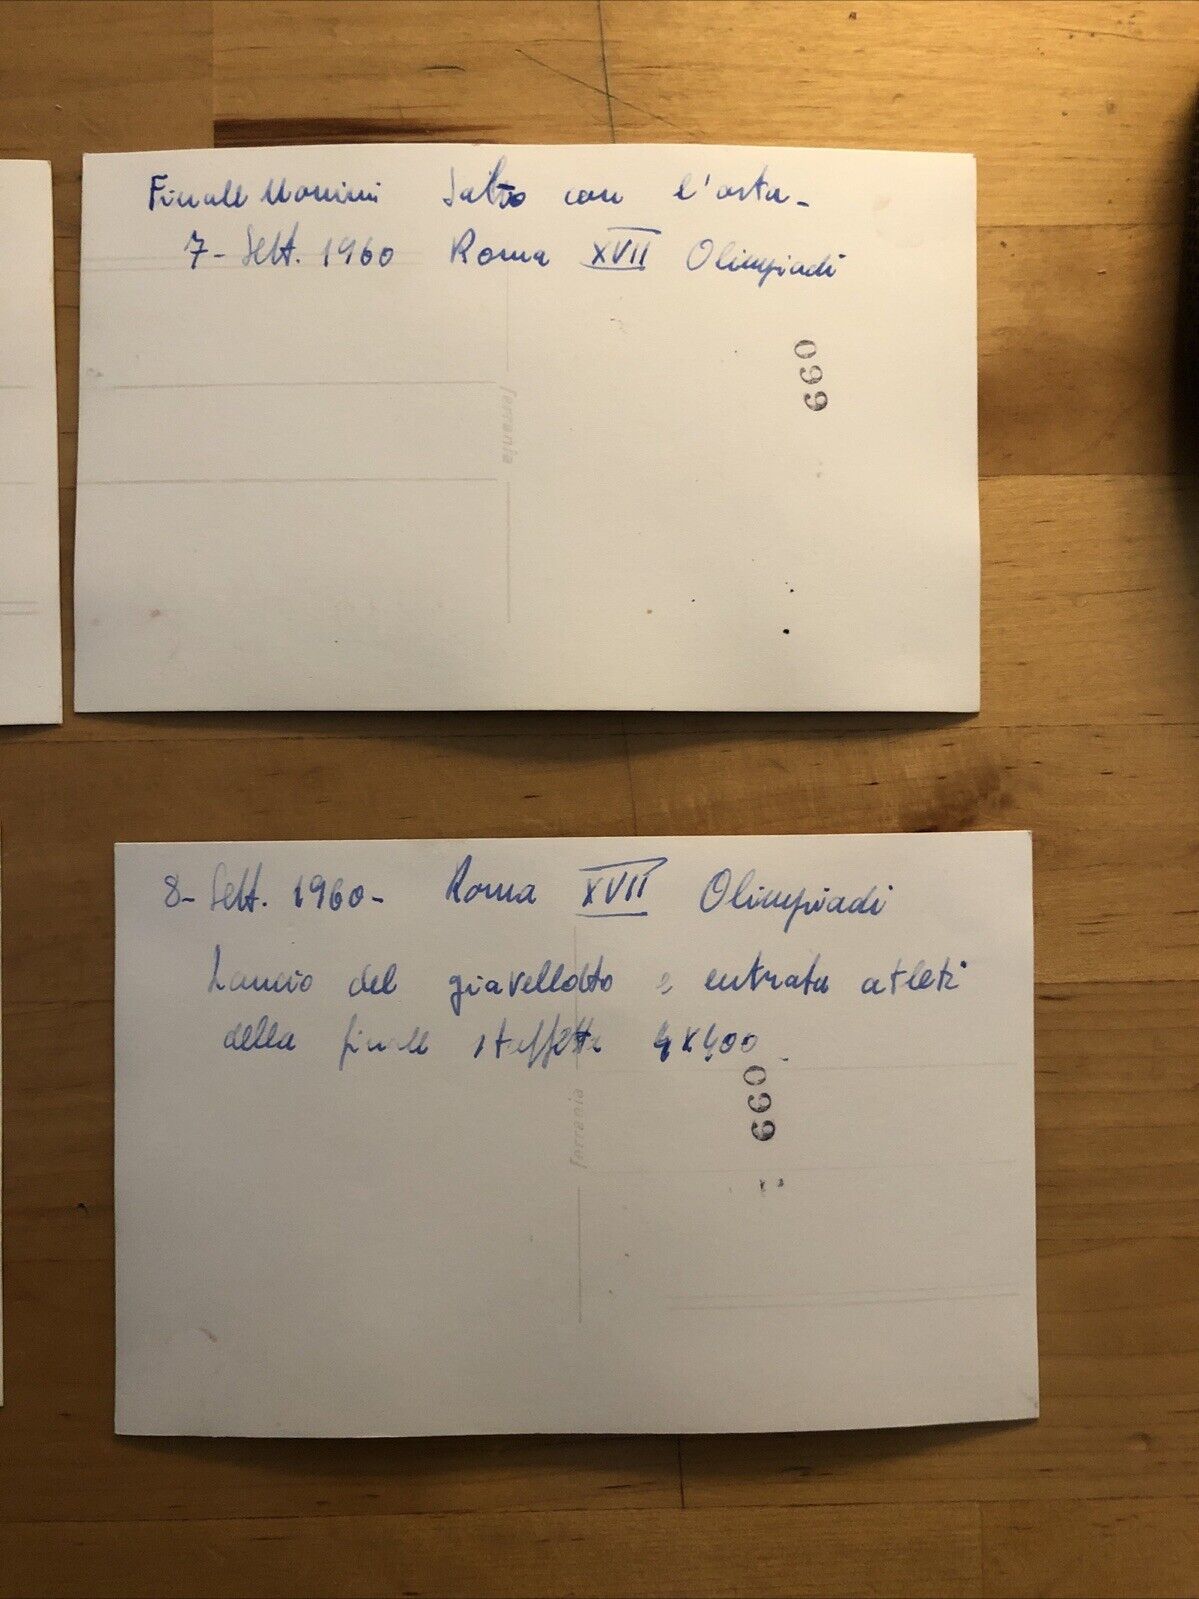 Finale Uomini Salto con l'asta -
7 - Sett. 1960 Roma XVII Olimpiadi
660
ferrania
8 - Sett. 1960 - Roma XVII Olimpiadi
Lancio del giavellotto e entrata atleti
della finale staffetta 4x400
660
ferrania